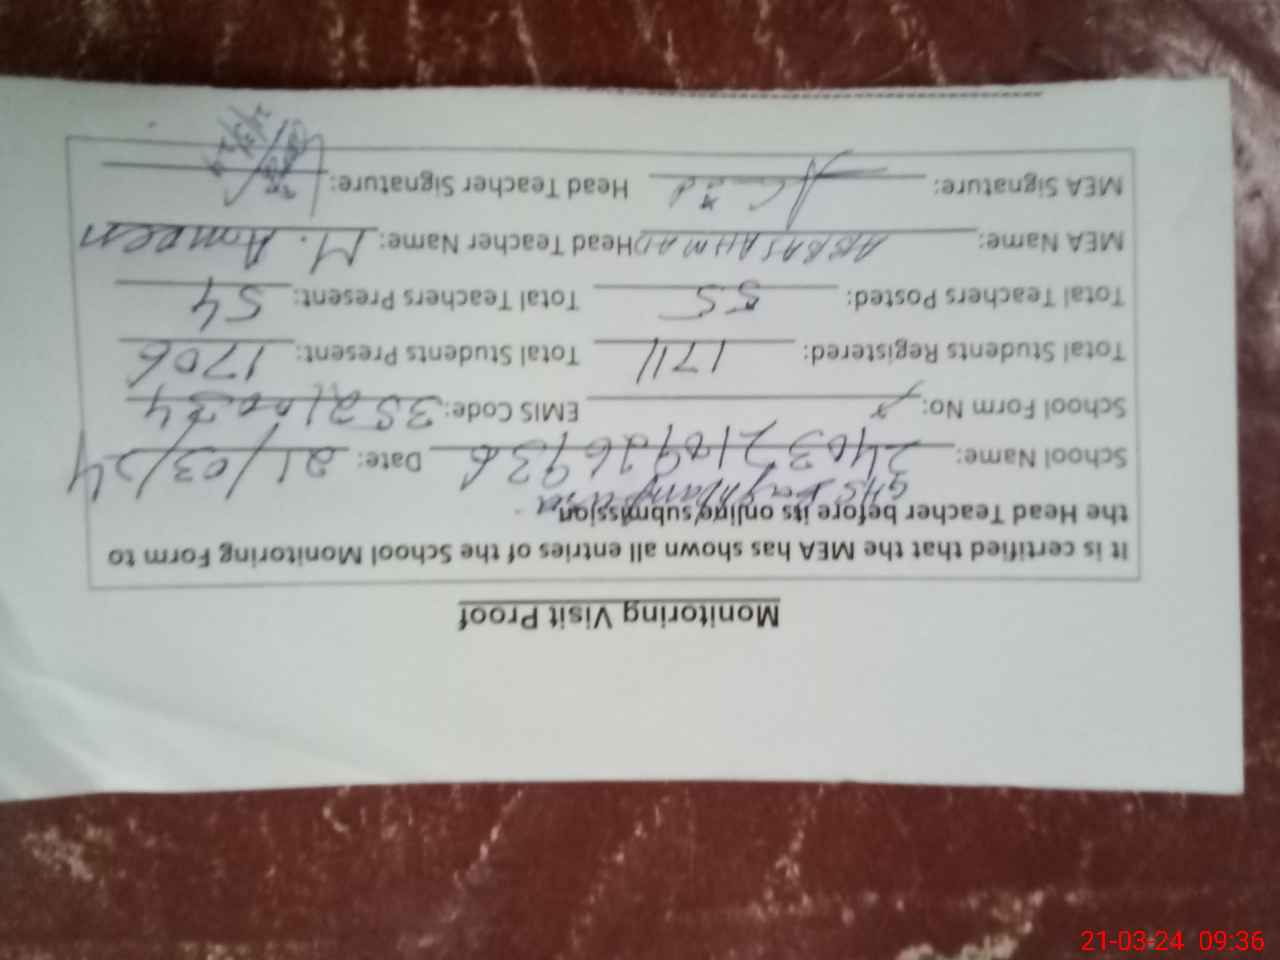 Monitoring Visit Proof
It is certified that the MEA has shown all entries of the School Monitoring Form to
the Head Teacher before its online submission.
GHS Baghbanpura
School Name: 2403210926936 Date: 21/03/24
School Form No: EMIS Code: 35210034
Total Students Registered: 1711 Total Students Present: 1706
Total Teachers Posted: 55 Total Teachers Present: 54
MEA Name: ABBAS AHMAD Head Teacher Name: M. Ameen
MEA Signature: Head Teacher Signature:
21-03-24 09:36